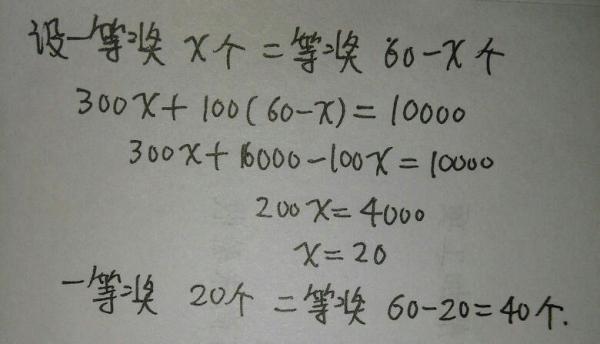 设一等奖 x个 二等奖 60-x个
300x+100(60-x)=10000
300x+6000-100x=10000
200x=4000
x=20
一等奖 20个 二等奖 60-20=40个.